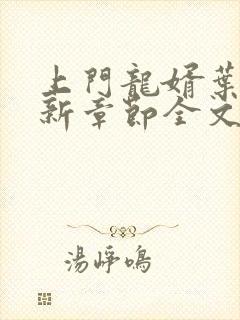 上門龍婿葉
新章節全文
湯崢鳴